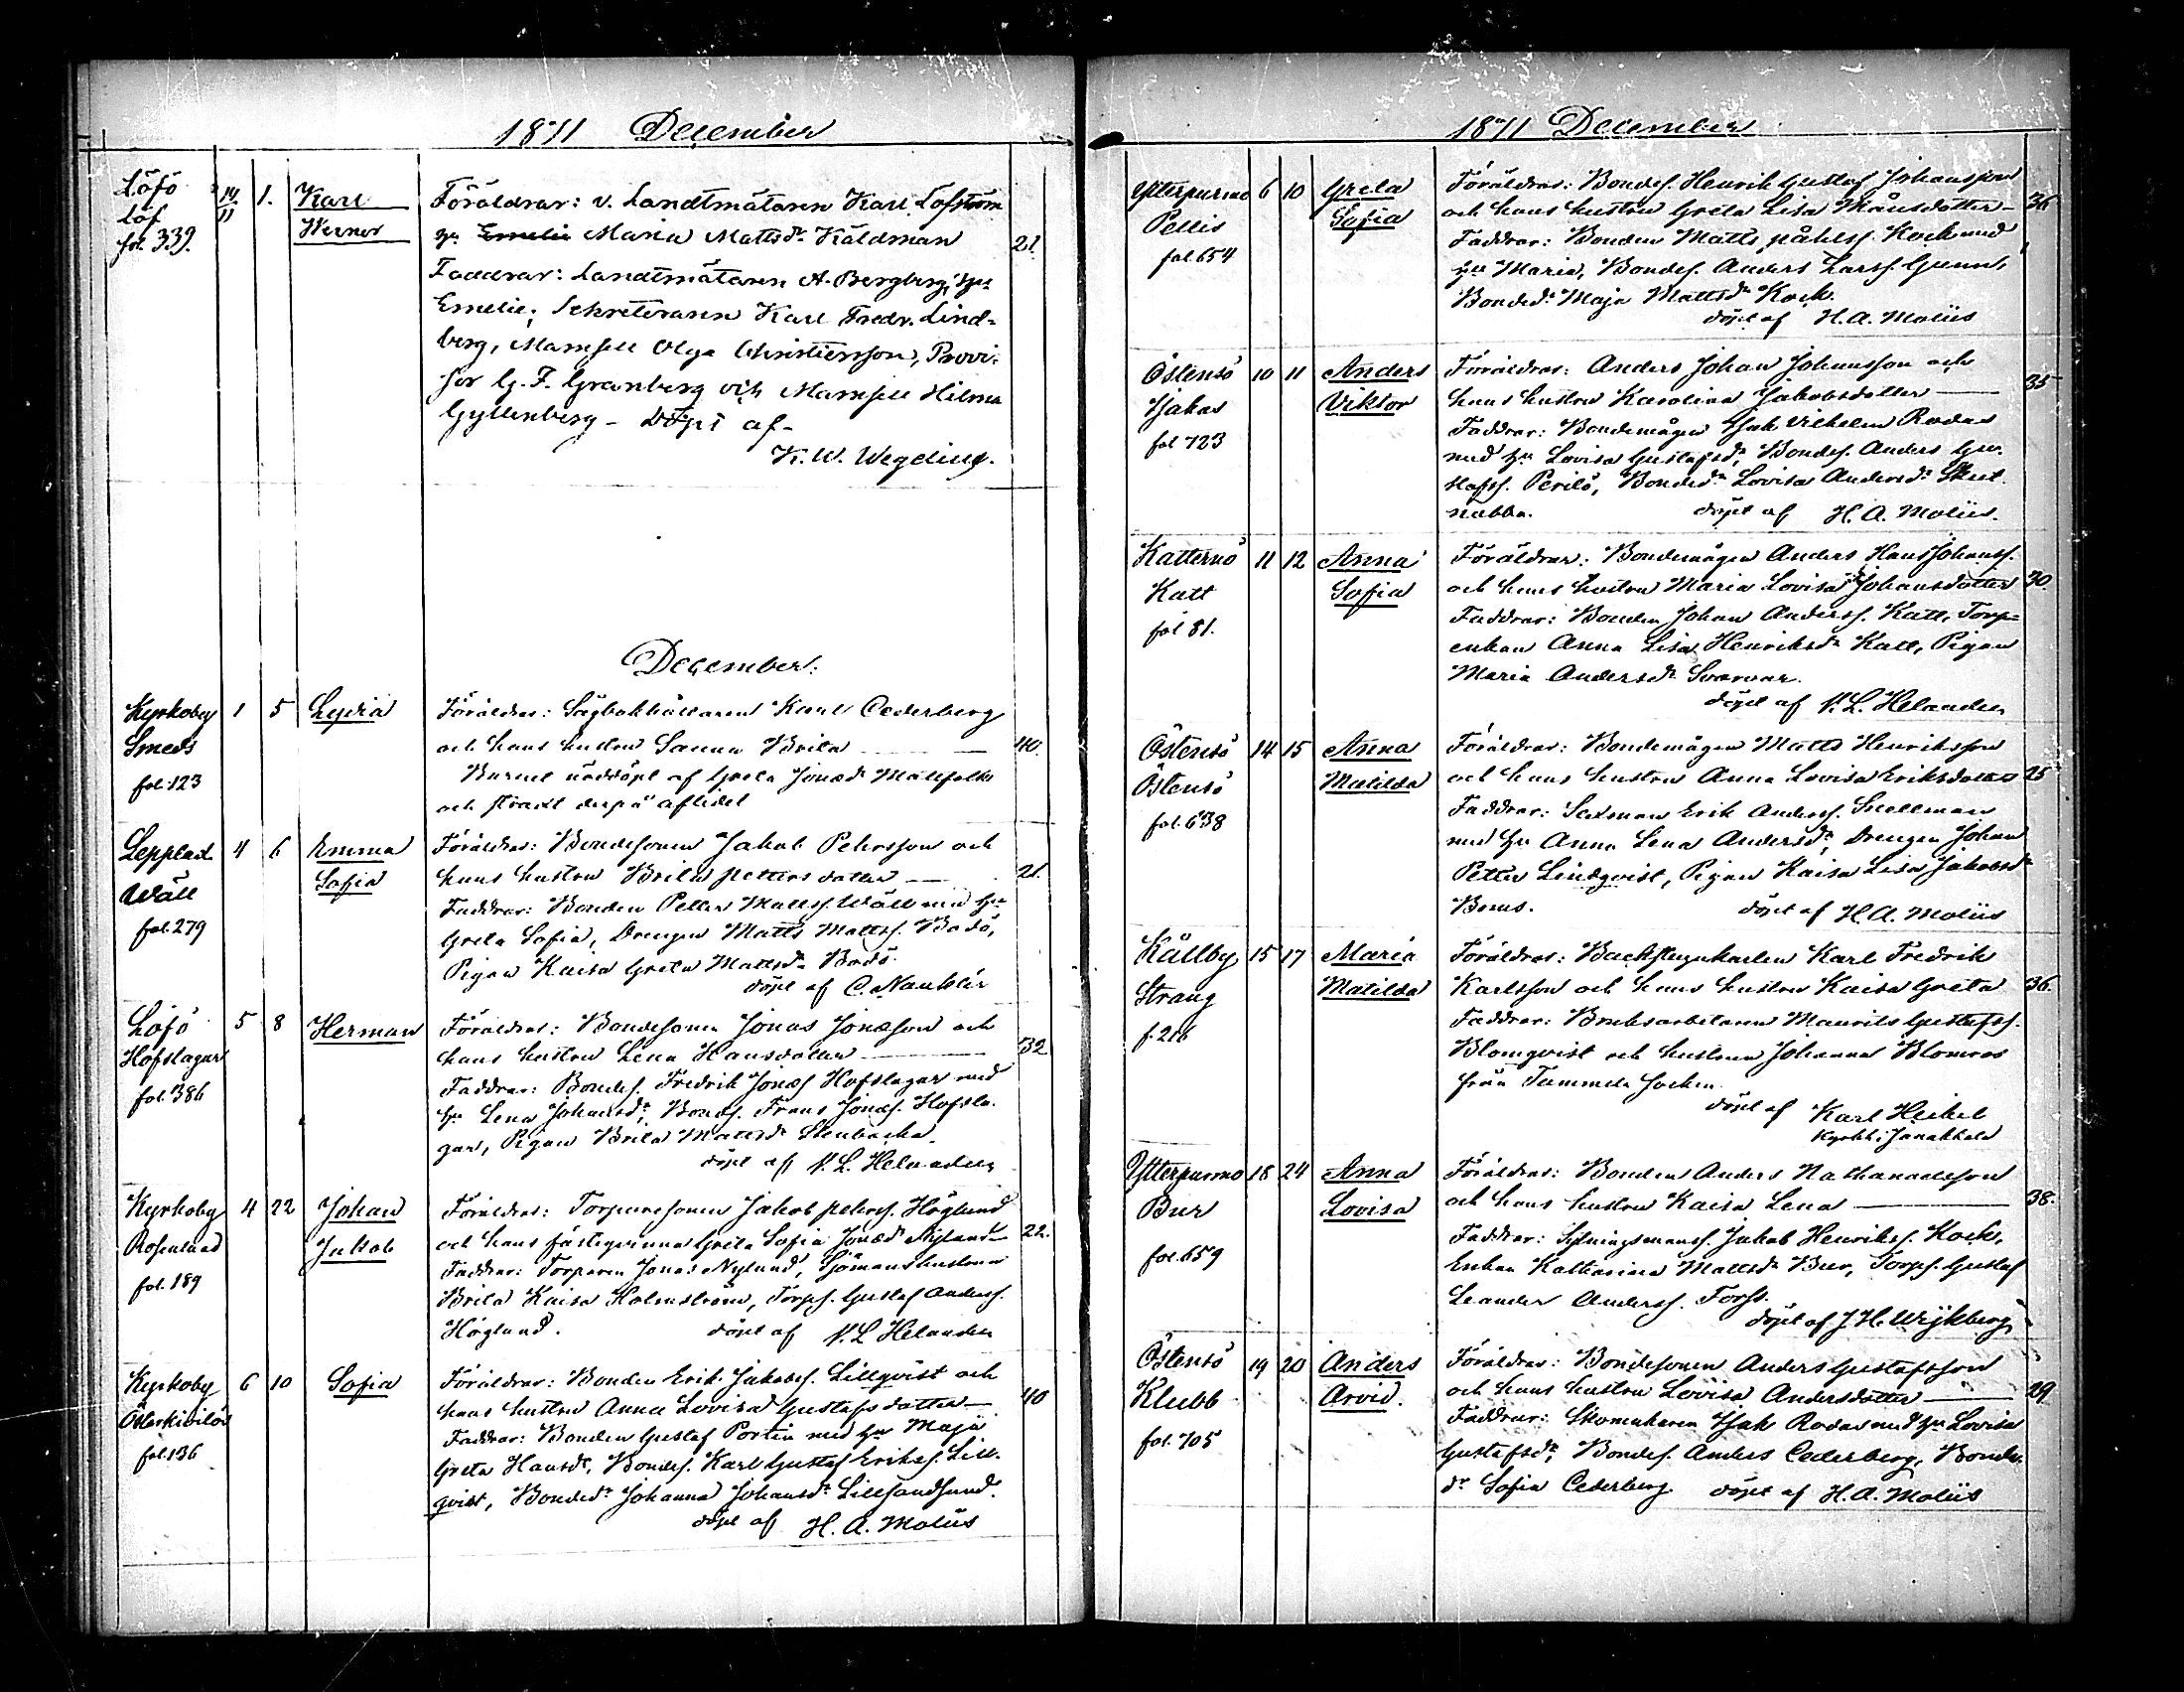 1871 December
Löfö 14/11 1. Karl Föräldrar: v. Landtmätaren Karl Löfström
Löf Werner hu Emelie Maria Mattsdr Käldman 21.
fol. 339. Faddrar: Landtmätaren A. Bergberg, hu
Emelie; Sekreteraren Karl Fredr. Lind-
berg, Mamsell Olga Christiersson, Provi-
sor G. F. Granberg och Mamsell Hilma
Gyllenberg - Döpt af -
K. W. Wegelius.
December.
Kyrkoby 1 5 Lydia Föräldrar: Karl Cederberg
Smeds och hans hustru Sanna Brita 40.
fol. 123 Barnet nöddöpt af Greta Jonæd Mällfolks
och straxt derpå aflidet
Lepplax 4 6 Emma Föräldrar: Bondesonen Jakob Pehrsson och
Wäll Sofia hans hustru Brita Pettersdotter 21.
fol. 279 Faddrar: Bonden Petter Mattss. Wäll med hu
Greta Sofia, Drengen Matts Mattss. Bodö,
Pigan Kaisa Greta Mattsdr Bodö.
döpt af C. Nauklér
Löfö 5 8 Herman Föräldrar: Bondesonen Jonas Jonæson och
Hofslagar hans hustru Lena Hansdotter 32
fol. 386 Faddrar: Bondes. Fredrik Jonæs. Hofslagar med
hu Lena Johansdr, Bondes. Frans Jonæs. Hofsla-
gar, Pigan Brita Mattsdr Stenbacka.
döpt af V. L. Helander
Kyrkoby 4 22 Johan Föräldrar: Torparesonen Jakob Pehrss. Höglund
Rosenlund Jakob och hans fästeqvinna Greta Sofia Jonæd Nylund 22.
fol. 189 Faddrar: Torparen Jonas Nylund, Sjömanshustrun
Brita Kaisa Holmström, Torps. Gustaf Anderss.
Höglund. döpt af V. L. Helander
Kyrkoby 6 10 Sofia Föräldrar: Bonden Erik Jakobss. Lillqvist och
hans hustru Anna Lovisa Gustafsdotter 40
fol. 136 Faddrar: Bonden Gustaf Portin med hu Maja
Greta Hansdr, Bondes. Karl Gustaf Eriks. Lill-
qvist, Bondedr Johanna Johansdr Lillsandsund.
döpt af H. A. Moliis
1871 December
Ytterpurmo 6 10 Greta Föräldrar: Bondes. Henrik Gustaf Johansson
Pellis Sofia och hans hustru Greta Lisa Månsdotter 36
fol. 654 Faddrar: Bonden Matts Påhlss. Kock med
hu Maria, Bondes. Anders Larss. Gunn,
Bondedr Maja Mattsdr Kock.
döpt af H. A. Moliis
Östensö 10 11 Anders Föräldrar: Anders Johan Johansson och
Viktor hans hustru Karolina Jakobsdotter 35
fol 723 Faddrar: Bondemågen Isak Vilhelm Rodas
med hu Lovisa Gustafsdr, Bondes. Anders Gu-
stafss. Perilö, Bondedr Lovisa Andersdr Skut-
nabba. döpt af H. A. Moliis.
Katternö 11 12 Anna Föräldrar: Bondemågen Anders Hans Johanss.
Katt Sofia och hans hustru Maria Lovisa Johansdotter 30.
fol 81. Faddrar: Bonden Johan Anderss. Katt, Torp-
enkan Anna Lisa Henriksdr Katt, Pigan
Maria Andersdr Svarvar.
döpt af V. L. Helander
Östensö 14 15 Anna Föräldrar: Bondemågen Matts Henriksson
Östensö Matilda och hans hustru Anna Lovisa Eriksdotter 25
fol. 638 Faddrar: Sexman Erik Anderss. Snellman
med hu Anna Lena Andersdr, Drengen Johan
Petter Lindqvist, Pigan Kaisa Lisa Jakobsdr
döpt af H. A. Moliis
Källby 15 17 Maria Föräldrar: Backstugukarlen Karl Fredrik
Strang Matilda Karlsson och hans hustru Kaisa Greta 36.
f. 216 Faddrar: Bruksarbetaren Maurits Gustafss.
Blomqvist och hustrun Johanna Blomros
från Tammela socken.
döpt af Karl Heikel
Kyrkh. i Janakkala
Ytterpurmo 18 24 Anna Föräldrar: Bonden Anders Nathanaelsson
Bur Lovisa och hans hustru Kaisa Lena 38.
fol. 659 Faddrar: Sytningsmanss. Jakob Henrikss. Kock,
Enkan Katharina Mattsdr Bur, Torps. Gustaf
Leander Anderss. Forss.
döpt af J. H. Wijkberg
Östensö 19 20 Anders Föräldrar: Bondesonen Anders Gustafsson
Klubb Arvid. och hans hustru Lovisa Andersdotter 29
fol. 705 Faddrar: Skomakaren Isak Rodas med hu Lovisa
Gustafsdr, Bondes. Anders Cederberg, Bonde-
dr Sofia Cederberg. döpt af H. A. Moliis